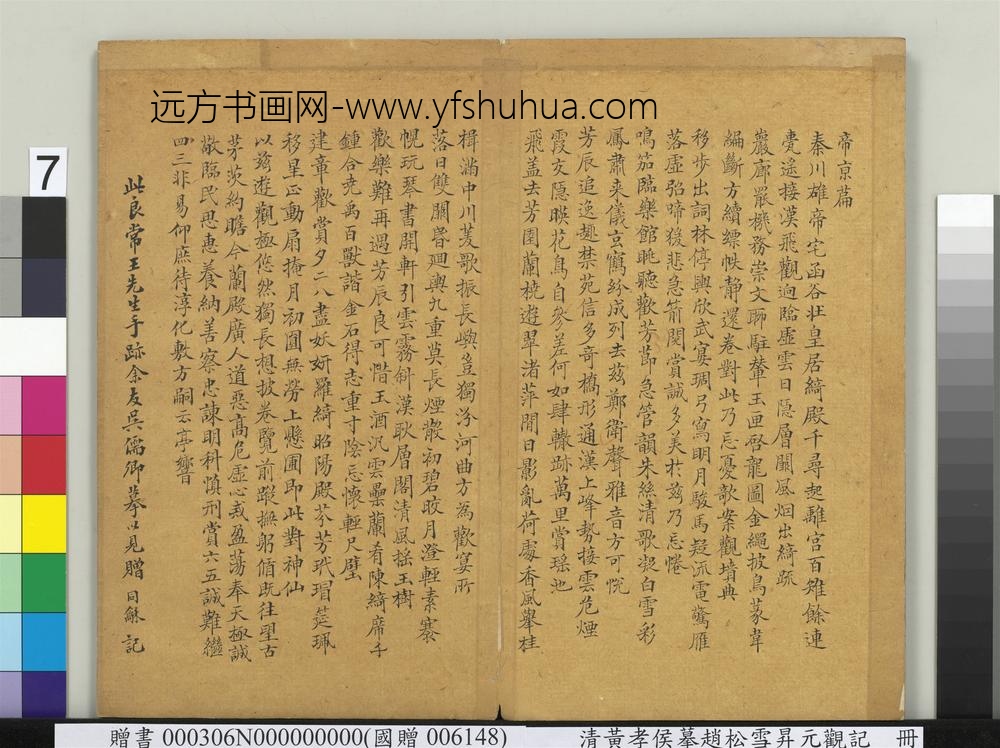 远方书画网-www.yfshuhua.com
帝京萹
秦川雄帝宅函谷壮皇居綺殿千尋起離宮百雉餘連
甍遥接漢飛觀迥臨虛雲日隱層闕風烟出綺疏
巖廊罷機務崇文聊駐輦玉匣啓龍圖金繩披鳥篆韋
編斷方續縹帙靜還卷對此乃忘憂欹案觀墳典
移步出詞林停輿欣武宴琱弓寫明月駿馬疑流電驚雁
落虛弦啼猨悲急箭閱賞誠多美於兹乃忘惓
鳴笳臨樂館眺聽歡芳節急管韻朱絲清歌凝白雪彩
鳳肅来儀玄鶴紛成列去茲鄭衛聲雅音方可恱
芳辰追逸趣禁苑信多奇橋形通漢上峰勢接雲危煙
霞交隱暎花鳥自參差何如肆轍跡萬里賞瑶池
飛盖去芳園蘭橈遊翠渚萍閒日影亂荷處香風舉桂
楫滿中川菱歌振長嶼豈獨汾河曲方為歡宴所
落日雙闕昬廻輿九重莫長煙散初碧皎月澄輕素搴
幌玩琴書開軒引雲霧斜漢耿層閣清風揺玉樹
歡樂難再遇芳辰良可惜玉酒汎雲罍蘭肴陳綺席千
鍾合尭禹百獸諧金石得志重寸陰忘懷輕尺璧
建章歡賞夕二八盡妖妍羅綺昭陽殿芬芳玳瑁筵珮
移星正動扇掩月初圓無勞上懸圃即此對神仙
以兹遊觀極悠然獨長想披卷覽前蹤撫躬循既往望古
茅茨約瞻今蘭殿廣人道惡髙危虛心戒盈蕩奉天極誠
敬臨民思惠養納善察忠諫明科慎刑賞六五誠難繼
四三非易仰庶待淳化敷方嗣云亭響
此良常王先生手跡余友吳儒卿摹以見贈 同龢記
7
贈書 000306N000000000(國贈 006148)
清黃孝侯摹趙松雪昇元觀記 冊